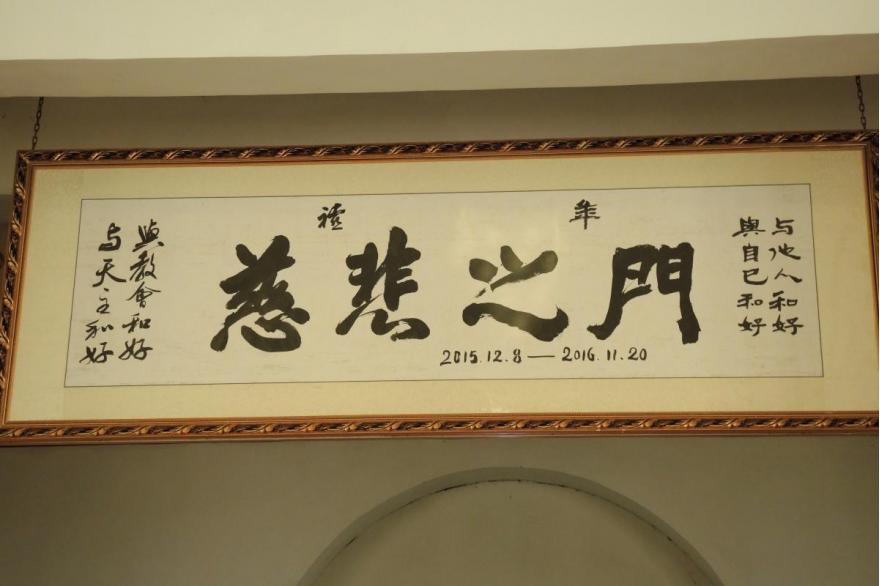 与天主和好
與教會和好
禧年
慈悲之門
2015.12.8—2016.11.20
與自己和好
与他人和好